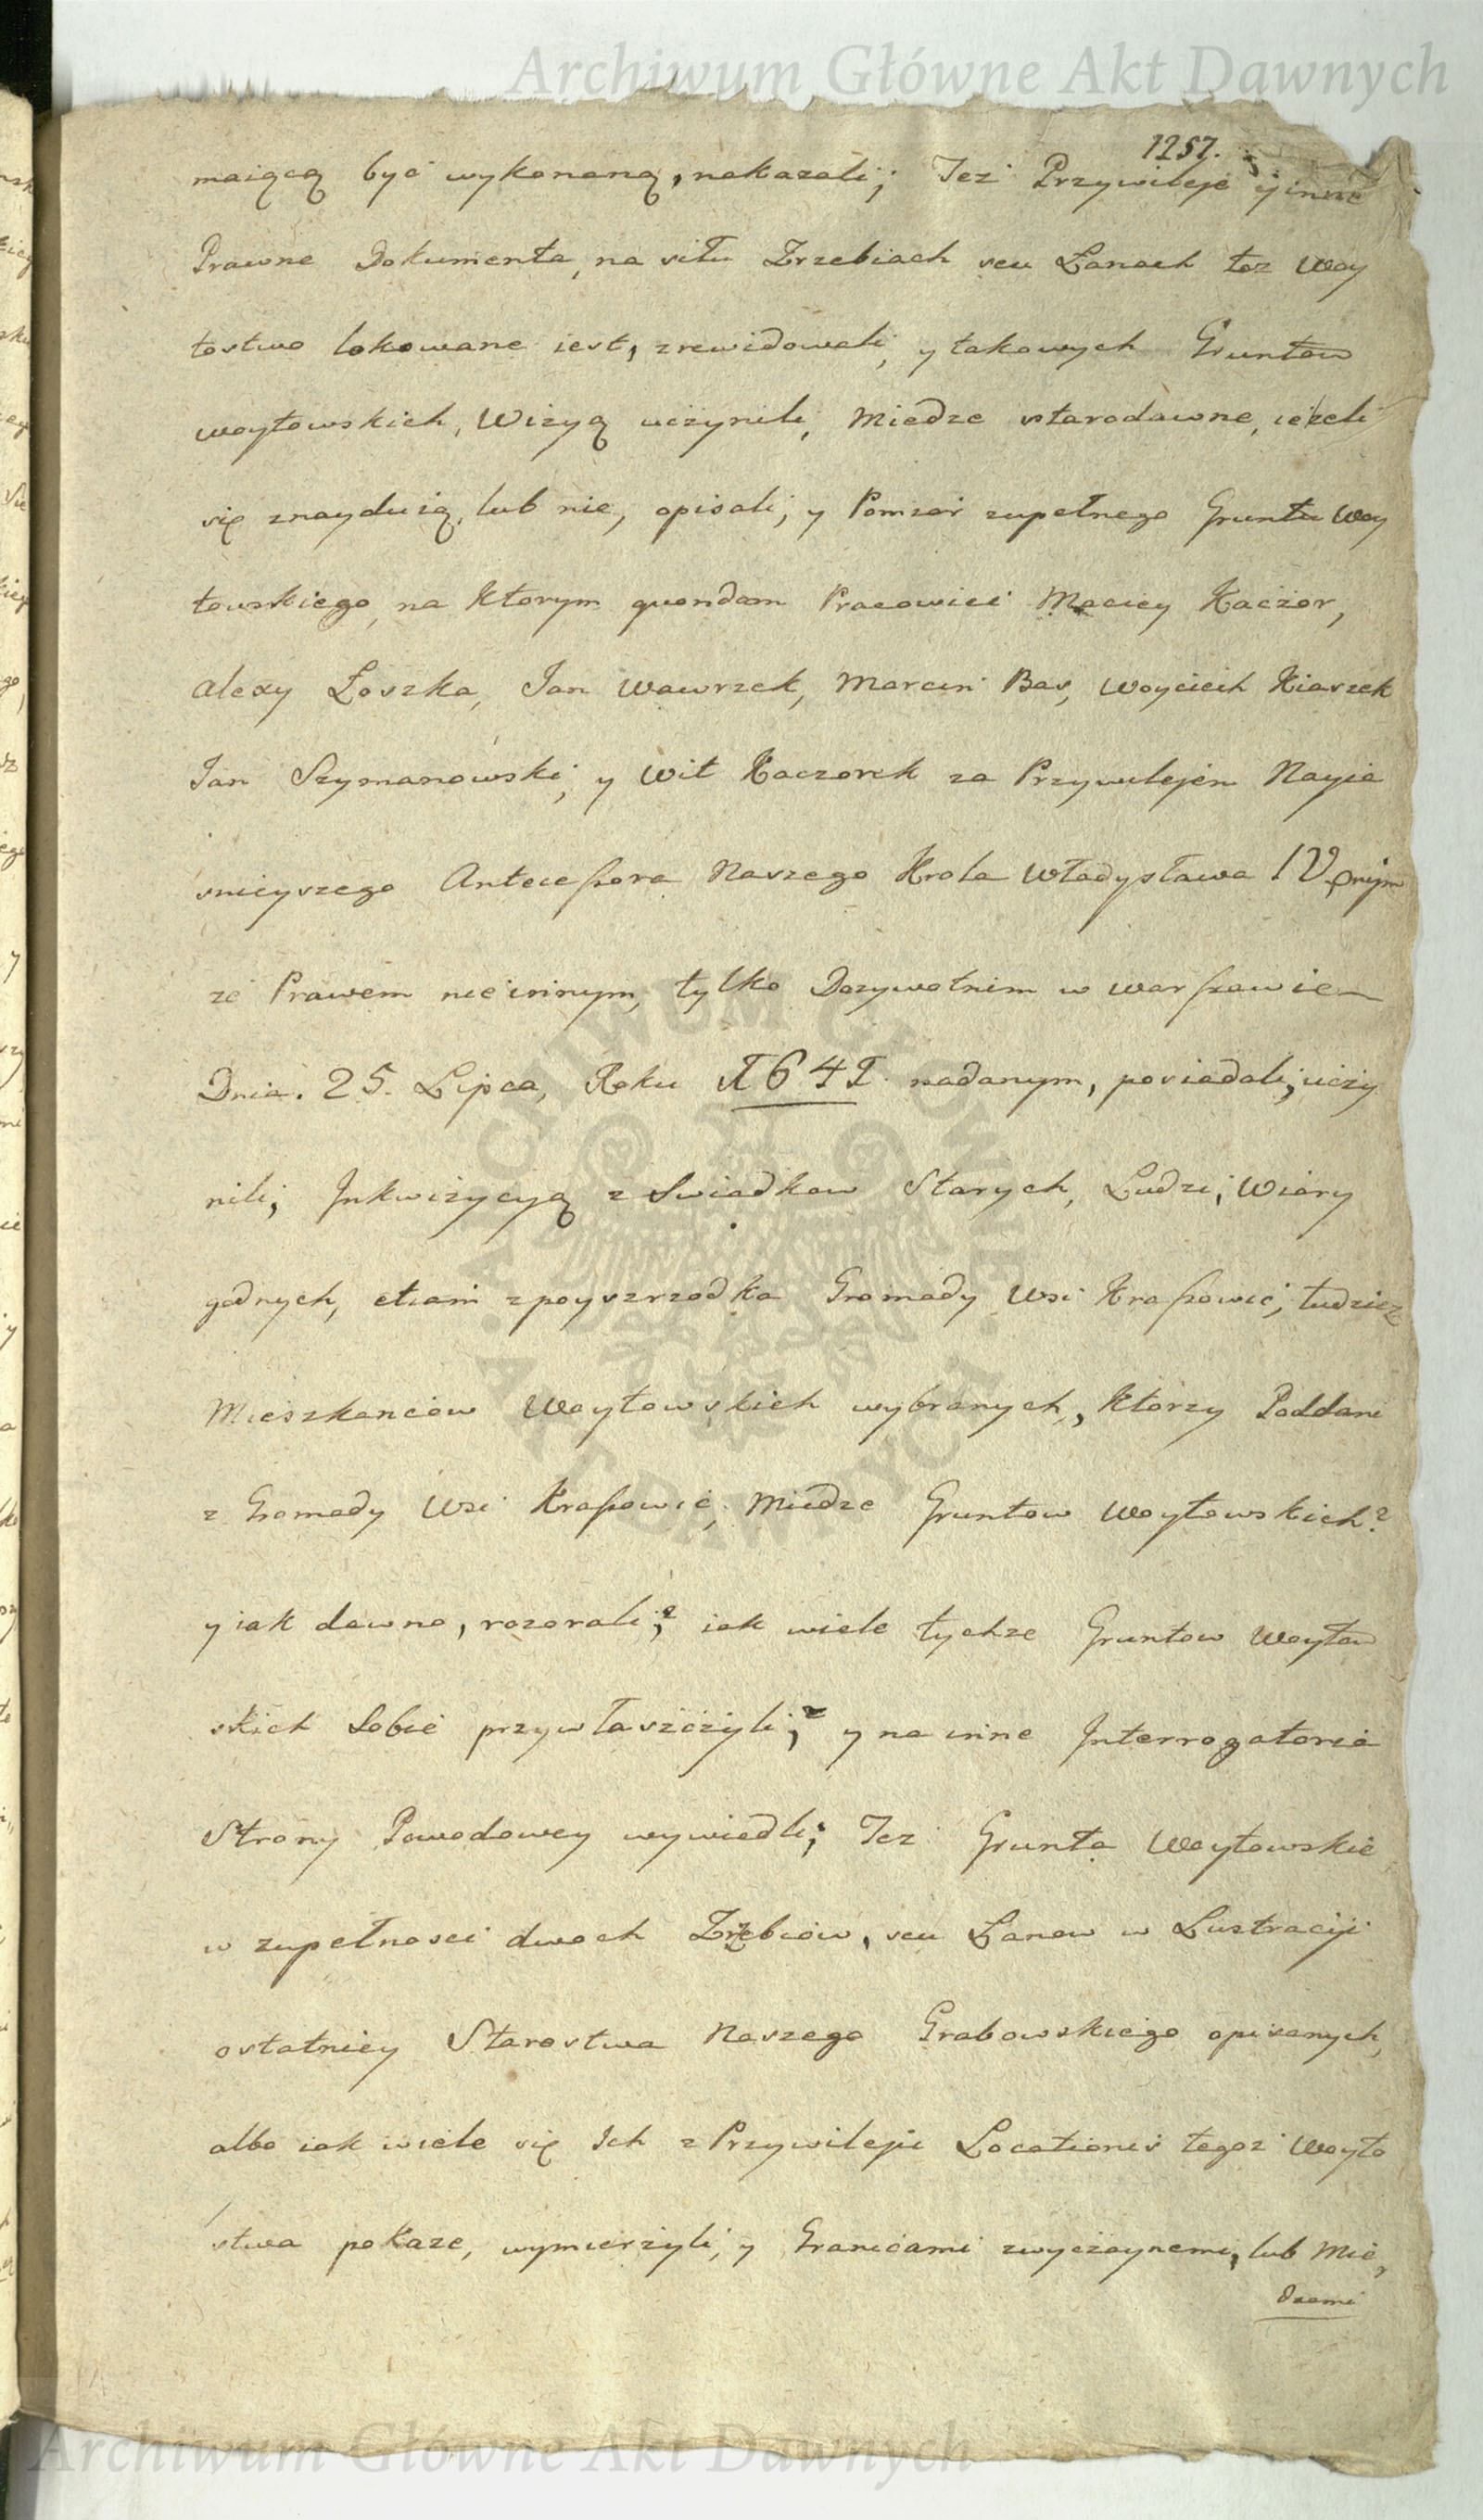 Archiwum Główne Akt Dawnych
1257.
maiącą być wykonaną, nakazali; Też Przywileje y inne
Prawne Dokumenta, na wiłu Zrzebiach seu Łanach toz Woy
tostwo lokowane iest, zrewidowali, y takowych Gruntow
woytowskich, Wizyą uczynili, Miedze starodawne, ieżeli
się znayduią, lub nie, opisali; y Pomiar zupełnego Gruntu Woy
towskiego, na Ktorym quondam Pracowici Maciey Kaczor,
Alexy Łoszka, Jan Wawrzek, Marcin Bas, Woyciech Kiarzek
Jan Szymanowski, y Wit Kaczorek za Przywilejem Nayia
snieyszego Antecessora Naszego Krola Władysława IV,
ze Prawem nie innym, tylko Dozywotnim w Warszawie
Dnia. 25. Lipca, Roku 1641. nadanym, posiadali, uczy
nili, Inkwizycyą z Swiadkow Starych, Ludzi, Wiary
godnych, etiam z poyszrzodka Gromady Wsi Krassowic, tudziez
Mieszkancow Woytowskich wybranych, Ktorzy Poddani
z Gromady Wsi Krassowic, Miedze Gruntow Woytowskich?
y iak dawno, rozorali;? iak wiele tychze Gruntow Woytow
skich Sobie przywłaszczyli;? y na inne Interrogatoria
Strony Powodowey wywiedli; Tez Grunta Woytowskie
w zupełnosci dwoch Zrzebiow, seu Łanow w Lustracyi
ostatniey Starostwa Naszego Grabowskiego opisanych,
albo iak wiele się Ich z Przywileju Locationis tegoz Woyto
stwa pokaze, wymierzyli, y Granicami zwyczaynemi, lub Mie,
dzami
Archiwum Główne Akt Dawnych